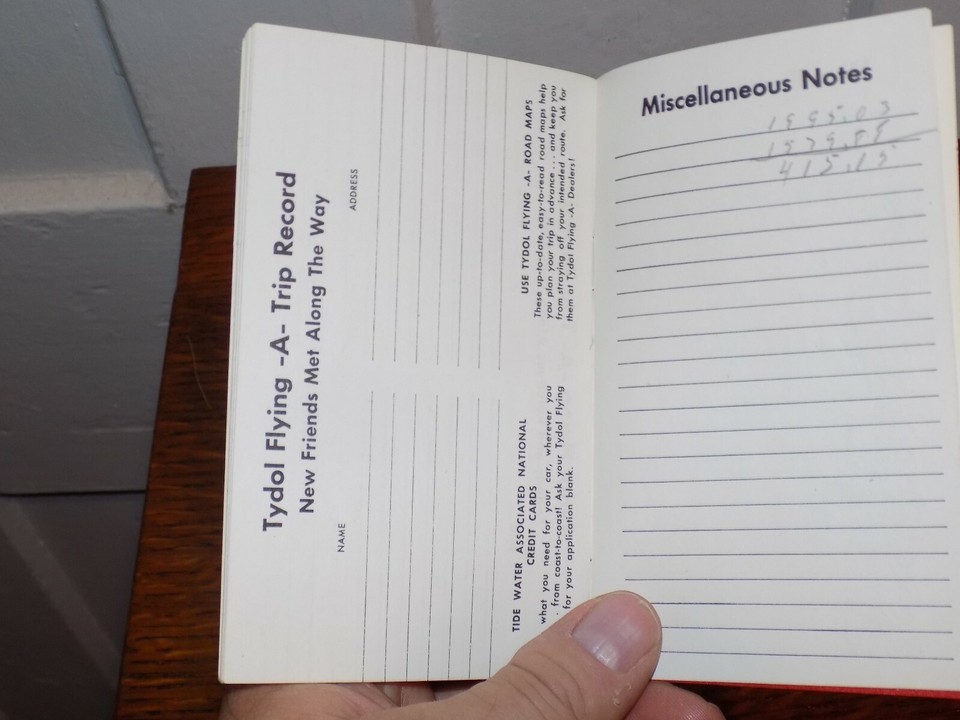 Tydol Flying -A- Trip Record
New Friends Met Along The Way
NAME ADDRESS
TIDE WATER ASSOCIATED NATIONAL
CREDIT CARDS
what you need for your car, wherever you
. from coast-to-coast! Ask your Tydol Flying
for your application blank.
USE TYDOL FLYING -A- ROAD MAPS
These up-to-date, easy-to-read road maps help
you plan your trip in advance . . . and keep you
from straying off your intended route. Ask for
them at Tydol Flying -A- Dealers!
Miscellaneous Notes
1995.03
1579.88
415.15